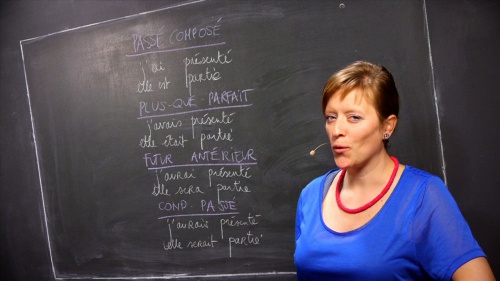 PASSÉ COMPOSÉ
j'ai présenté
elle est partie
PLUS-QUE-PARFAIT
j'avais présenté
elle était partie
FUTUR ANTÉRIEUR
j'aurai présenté
elle sera partie
COND. PASSÉ
j'aurais présenté
elle serait partie